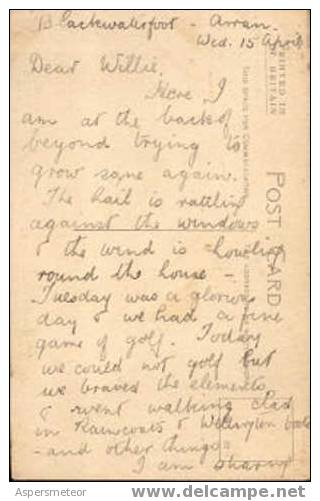 Blackwaterfoot - Arran.
Wed. 15 April
Dear Willie,
Here I
am at the back of
beyond trying to
grow sane again.
The hail is rattling
against the windows
& the wind is howling
round the house -
Tuesday was a glorious
day & we had a fine
game of golf. Today
we could not golf but
we braved the elements
& went walking clad
in Raincoats & Wellington boots
- and other things -
I am sharing
PRINTED IN
BRITAIN
THIS SPACE FOR COMMUNICATION
POST CARD
Aspersmeteor
www.delcampe.net